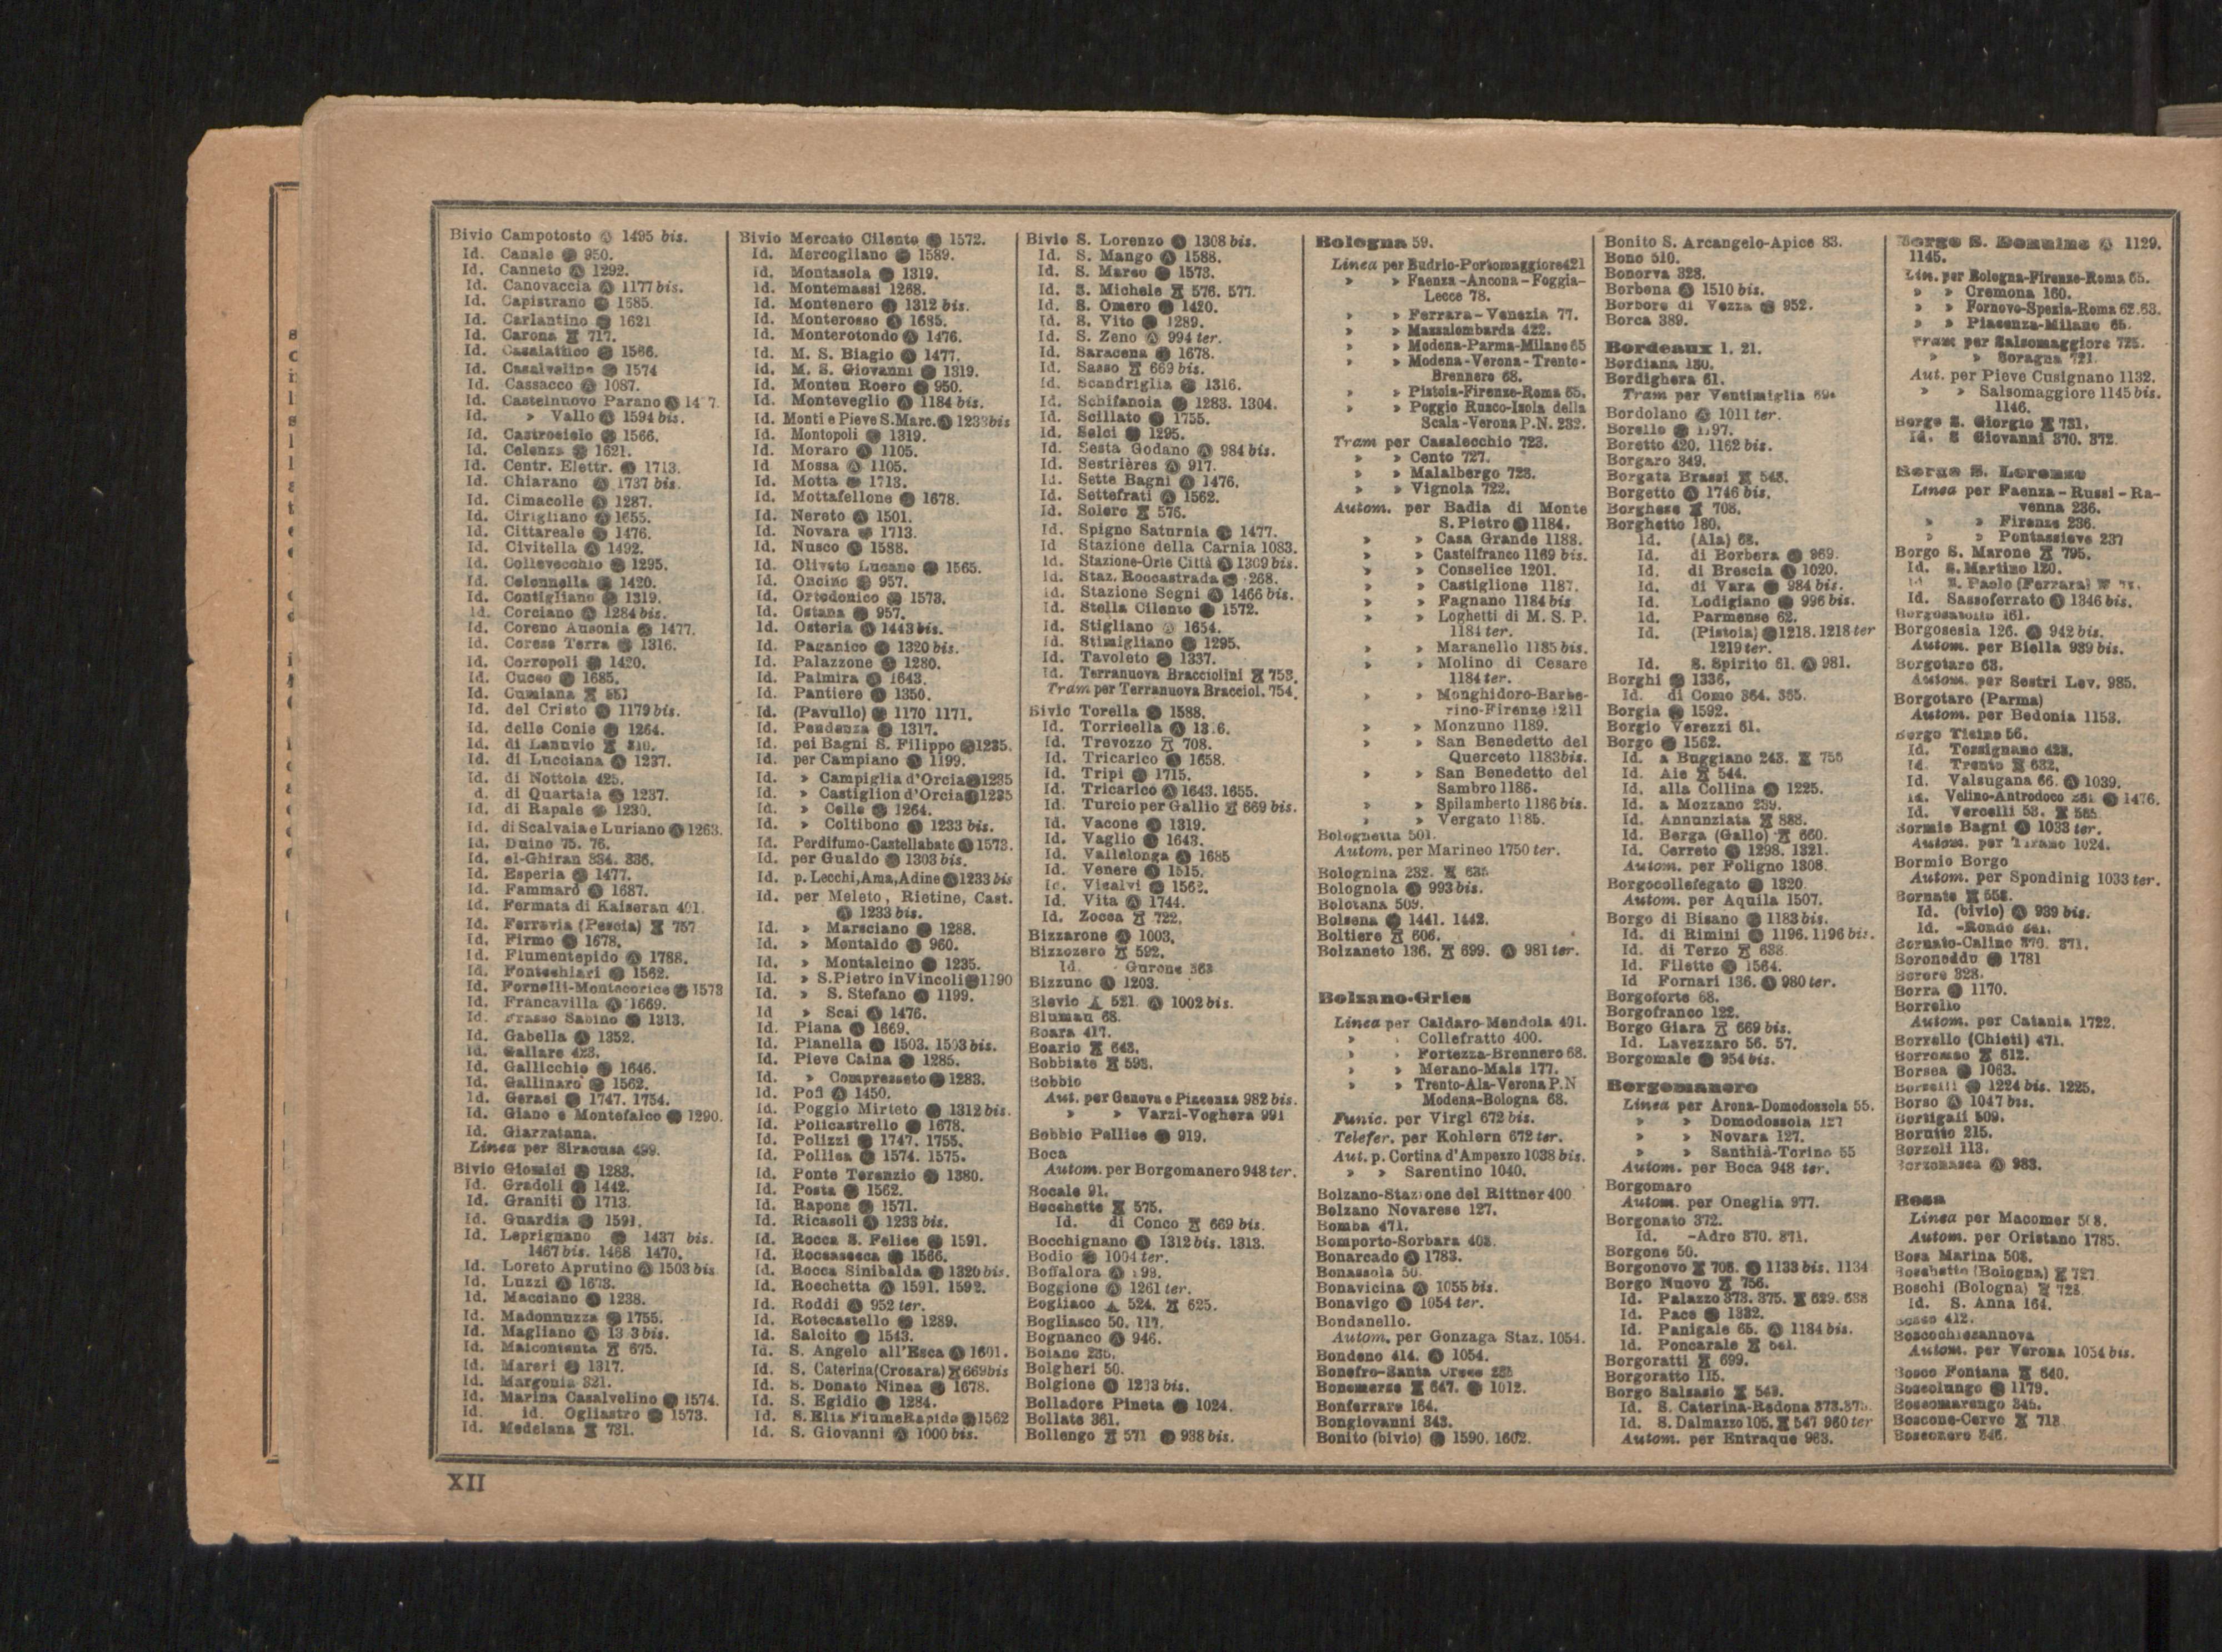 Bivio Campotosto Ⓐ 1495 bis.
Id. Canale ● 950.
Id. Canneto Ⓐ 1292.
Id. Canovaccia Ⓐ 1177 bis.
Id. Capistrano ● 1685.
Id. Carlantino ● 1621
Id. Carona 717.
Id. Casalattico ● 1566.
Id. Casalvelino ● 1574
Id. Cassacco Ⓐ 1087.
Id. Castelnuovo Parano Ⓐ
Id. » Vallo Ⓐ 1594 bis.
Id. Castrocielo ● 1566.
Id. Celenza ● 1621.
Id. Centr. Elettr. Ⓐ 1713.
Id. Chiarano Ⓐ 1737 bis.
Id. Cimacolle Ⓐ 1287.
Id. Cirigliano Ⓐ 1655.
Id. Cittareale ● 1476.
Id. Civitella Ⓐ 1492.
Id. Collevecchio ● 1295.
Id. Colonnella ● 1420.
Id. Contigliano ● 1319.
Id. Corciano Ⓐ 1284 bis.
Id. Coreno Ausonia ● 1477.
Id. Corese Terra ● 1316.
Id. Corropoli ● 1420.
Id. Cuceo ● 1685.
Id. Cumiana 551
Id. del Cristo ● 1179 bis.
Id. delle Conie ● 1264.
Id. di Lanuvio 810.
Id. di Lucciana Ⓐ 1237.
Id. di Nottola 425.
d. di Quartaia ● 1237.
Id. di Rapale ● 1230.
Id. di Scalvaia e Luriano Ⓐ 1263.
Id. Duino 75. 76.
Id. el-Ghiran 334. 336.
Id. Esperia ● 1477.
Id. Fammarò Ⓐ 1687.
Id. Fermata di Kaiserau 401.
Id. Ferrovia (Pescia) 757
Id. Firmo ● 1678.
Id. Fiumentepido Ⓐ 1788.
Id. Fontechiari ● 1562.
Id. Fornelli-Montecorice ● 1573
Id. Francavilla Ⓐ 1669.
Id. Frasso Sabino ● 1313.
Id. Gabella Ⓐ 1352.
Id. Gallare 423.
Id. Gallicchio ● 1646.
Id. Gallinaro ● 1562.
Id. Geraci ● 1747. 1754.
Id. Giano e Montefalco ● 1290.
Id. Giarratana.
Linea per Siracusa 499.
Bivio Giomici ● 1283.
Id. Gradoli Ⓐ 1442.
Id. Graniti Ⓐ 1713.
Id. Guardia ● 1591.
Id. Leprignano ● 1437 bis.
1467 bis. 1468 1470.
Id. Loreto Aprutino Ⓐ 1503 bis
Id. Luzzi Ⓐ 1673.
Id. Macciano Ⓐ 1238.
Id. Madonnuzza ● 1755.
Id. Magliano Ⓐ
Id. Malcontenta 675.
Id. Mareri ● 1317.
Id. Margonia 321.
Id. Marina Casalvelino ● 1574.
Id. id. Ogliastro ● 1573.
Id. Medelana 731.
Bivio Mercato Cilento ● 1572.
Id. Mercogliano ● 1589.
Id. Montasola ● 1319.
Id. Montemassi 1268.
Id. Montenero ● 1312 bis.
Id. Monterosso Ⓐ 1685.
Id. Monterotondo Ⓐ 1476.
Id. M. S. Biagio Ⓐ 1477.
Id. M. S. Giovanni ● 1319.
Id. Monteu Roero ● 950.
Id. Monteveglio Ⓐ 1184 bis.
Id. Monti e Pieve S. Marc. Ⓐ 1233 bis
Id. Montopoli ● 1319.
Id. Moraro Ⓐ 1105.
Id Mossa Ⓐ 1105.
Id. Motta ● 1713.
Id. Mottafellone ● 1678.
Id. Nereto Ⓐ 1501.
Id. Novara ● 1713.
Id. Nusco ● 1588.
Id. Oliveto Lucano ● 1565.
Id. Oncino ● 957.
Id. Ortodonico ● 1573.
Id. Ostana ● 957.
Id. Osteria Ⓐ 1443 bis.
Id. Paganico ● 1320 bis.
Id. Palazzone ● 1280.
Id. Palmira Ⓐ 1643.
Id. Pantiere Ⓐ 1350.
Id. (Pavullo) ● 1170 1171.
Id. Pendenza ● 1317.
Id. pei Bagni S. Filippo ● 1235.
Id. per Campiano Ⓐ 1199.
Id. » Campiglia d'Orcia ● 1235
Id. » Castiglion d'Orcia ● 1235
Id. » Celle ● 1264.
Id. » Coltibono Ⓐ 1233 bis.
Id. Perdifumo-Castellabate Ⓐ 1573.
Id. per Gualdo ● 1303 bis.
Id. p. Lecchi, Ama, Adine Ⓐ 1233 bis
Id. per Meleto, Rietine, Cast.
Ⓐ 1233 bis.
Id. » Marsciano ● 1288.
Id. » Montaldo ● 960.
Id. » Montalcino ● 1235.
Id. » S. Pietro in Vincoli ● 1190
Id. » S. Stefano Ⓐ 1199.
Id » Scai Ⓐ 1476.
Id. Piana Ⓐ 1669.
Id. Pianella Ⓐ 1503. 1503 bis.
Id. Pieve Caina ● 1285.
Id. » Compresseto ● 1283.
Id. Pofi Ⓐ 1450.
Id. Poggio Mirteto ● 1312 bis.
Id. Policastrello ● 1678.
Id. Polizzi ● 1747. 1755.
Id. Pollica ● 1574. 1575.
Id. Ponte Terenzio ● 1380.
Id. Posta ● 1562.
Id. Rapone ● 1571.
Id. Ricasoli Ⓐ 1233 bis.
Id. Rocca S. Felice ● 1591.
Id. Roccasecca ● 1566.
Id. Rocca Sinibalda ● 1320 bis.
Id. Rocchetta Ⓐ 1591. 1592.
Id. Roddi Ⓐ 952 ter.
Id. Rotecastello ● 1289.
Id. Salcito ● 1543.
Id. S. Angelo all'Esca Ⓐ 1601.
Id. S. Caterina (Crosara) 669 bis
Id. S. Donato Ninea ● 1678.
Id. S. Egidio ● 1284.
Id. S. Elia Fiume Rapido ● 1562
Id. S. Giovanni Ⓐ 1000 bis.
Bivio S. Lorenzo Ⓐ 1308 bis.
Id. S. Mango Ⓐ 1588.
Id. S. Marco ● 1573.
Id. S. Michele 576. 577.
Id. S. Omero ● 1420.
Id. S. Vito ● 1289.
Id. S. Zeno Ⓐ 994 ter.
Id. Saracena ● 1678.
Id. Sasso 669 bis.
Id. Scandriglia ● 1316.
Id. Schifanoia ● 1283. 1304.
Id. Scillato ● 1755.
Id. Selci ● 1295.
Id. Sesta Godano Ⓐ 984 bis.
Id. Sestrières Ⓐ 917.
Id. Sette Bagni Ⓐ 1476.
Id. Settefrati Ⓐ 1562.
Id. Solero 576.
Id. Spigno Saturnia ● 1477.
Id Stazione della Carnia 1083.
Id. Stazione-Orte Città Ⓐ 1309 bis.
Id. Staz. Roccastrada ● 268.
Id. Stazione Segni Ⓐ 1466 bis.
Id. Stella Cilento ● 1572.
Id. Stigliano Ⓐ 1654.
Id. Stimigliano ● 1295.
Id. Tavoleto ● 1337.
Id. Terranuova Bracciolini 753.
Tram per Terranuova Bracciol. 754.
Bivio Torella ● 1588.
Id. Torricella Ⓐ
Id. Trevozzo 708.
Id. Tricarico Ⓐ 1658.
Id. Tripi ● 1715.
Id. Tricarico Ⓐ 1643. 1655.
Id. Turcio per Gallio 669 bis.
Id. Vacone ● 1319.
Id. Vaglio ● 1643.
Id. Vallelonga Ⓐ 1685
Id. Venere Ⓐ 1515.
Id. Vicalvi ● 1562.
Id. Vita Ⓐ 1744.
Id. Zocca 722.
Bizzarone Ⓐ 1003.
Bizzozero 592.
Id. Gurone 363
Bizzuno Ⓐ 1203.
Blevio 521. Ⓐ 1002 bis.
Blumau 68.
Boara 417.
Boario 643.
Bobbiate 593.
Bobbio
Aut. per Genova e Piacenza 982 bis.
» » Varzi-Voghera 991
Bobbio Pellice ● 919.
Boca
Autom. per Borgomanero 948 ter.
Bocale 91.
Bocchette 575.
Id. di Conco 669 bis.
Bocchignano Ⓐ 1312 bis. 1313.
Bodio ● 1004 ter.
Boffalora Ⓐ
Boggione Ⓐ 1261 ter.
Bogliaco 524. 625.
Bogliasco 50. 117.
Bognanco Ⓐ 946.
Boiano 235.
Bolgheri 50.
Bolgione Ⓐ 1233 bis.
Belladore Pineta ● 1024.
Bollate 361.
Bollengo 571 ● 938 bis.
Bologna 59.
Linea per Budrio-Portomaggiore 421
» » Faenza-Ancona-Foggia-
Lecce 78.
» » Ferrara-Venezia 77.
» » Massalombarda 422.
» » Modena-Parma-Milano 65
» » Modena-Verona-Trento-
Brennero 68.
» » Pistoia-Firenze-Roma 65.
» » Poggio Rusco-Isola della
Scala-Verona P.N. 232.
Tram per Casalecchio 723.
» » Cento 727.
» » Malalbergo 723.
» » Vignola 722.
Autom. per Badia di Monte
S. Pietro ● 1184.
» » Casa Grande 1188.
» » Castelfranco 1169 bis.
» » Conselice 1201.
» » Castiglione 1187.
» » Fagnano 1184 bis
» » Loghetti di M. S. P.
1184 ter.
» » Maranello 1185 bis.
» » Molino di Cesare
1184 ter.
» » Monghidoro-Barbe-
rino-Firenze 1211
» » Monzuno 1189.
» » San Benedetto del
Querceto 1183 bis.
» » San Benedetto del
Sambro 1186.
» » Spilamberto 1186 bis.
» » Vergato 1185.
Bolognetta 501.
Autom. per Marineo 1750 ter.
Bolognina 232. 635
Bolognola Ⓐ 993 bis.
Bolotana 509.
Bolsena ● 1441. 1442.
Boltiere 606.
Bolzaneto 136. 699. Ⓐ 981 ter.
Bolzano-Gries
Linea per Caldaro-Mendola 401.
» » Collefratto 400.
» » Fortezza-Brennero 68.
» » Merano-Mals 177.
» » Trento-Ala-Verona P.N
Modena-Bologna 68.
Funic. per Virgl 672 bis.
Telefer. per Kohlern 672 ter.
Aut. p. Cortina d'Ampezzo 1038 bis.
» » Sarentino 1040.
Bolzano-Stazione del Rittner 400
Bolzano Novarese 127.
Bomba 471.
Bomporto-Sorbara 403.
Bonarcado Ⓐ 1783.
Bonassola 50.
Bonavicina Ⓐ 1055 bis.
Bonavigo Ⓐ 1054 ter.
Bondanello.
Autom. per Gonzaga Staz. 1054.
Bondeno 414. Ⓐ 1054.
Bonefro-Santa Croce
Bonemerse 647. ● 1012.
Bonferraro 164.
Bongiovanni 343.
Bonito (bivio) ● 1590. 1602.
Bonito S. Arcangelo-Apice 83.
Bono 510.
Bonorva 328.
Borbona Ⓐ 1510 bis.
Borbore di Vezza ● 952.
Borca 389.
Bordeaux 1. 21.
Bordiana 180.
Bordighera 61.
Tram per Ventimiglia
Bordolano Ⓐ 1011 ter.
Borello ●
Boretto 420. 1162 bis.
Borgaro 349.
Borgata Brassi 543.
Borgetto Ⓐ 1746 bis.
Borghese 708.
Borghetto 180.
Id. (Ala) 68.
Id. di Borbera ● 969.
Id. di Brescia Ⓐ 1020.
Id. di Vara ● 984 bis.
Id. Lodigiano ● 996 bis.
Id. Parmense 62.
Id. (Pistoia) ● 1218. 1218 ter
1219 ter.
Id. S. Spirito 61. Ⓐ 981.
Borghi ● 1336.
Id. di Como 364. 365.
Borgia ● 1592.
Borgio Verezzi 61.
Borgo ● 1562.
Id. a Buggiano 243. 755
Id. Aie 544.
Id. alla Collina ● 1225.
Id. a Mozzano 239.
Id. Annunziata 888.
Id. Berga (Gallo) 660.
Id. Cerreto ● 1298. 1321.
Autom. per Foligno 1308.
Borgocollefegato ● 1320.
Autom. per Aquila 1507.
Borgo di Bisano ● 1183 bis.
Id. di Rimini Ⓐ 1196. 1196 bis.
Id. di Terzo 638
Id. Filetto ● 1564.
Id Fornari 136. Ⓐ 980 ter.
Borgoforte 68.
Borgofranco 122.
Borgo Giara 669 bis.
Id. Lavezzaro 56. 57.
Borgomale ● 954 bis.
Borgomanero
Linea per Arona-Domodossola 55.
» » Domodossola 127
» » Novara 127.
» » Santhià-Torino 55
Autom. per Boca 948 ter.
Borgomaro
Autom. per Oneglia 977.
Borgonato 372.
Id. -Adro 370. 371.
Borgone 50.
Borgonovo 708. Ⓐ 1133 bis. 1134
Borgo Nuovo 756.
Id. Palazzo 373. 375. 629. 638
Id. Pace ● 1332.
Id. Panigale 65. Ⓐ 1184 bis.
Id. Poncarale 641.
Borgoratti 699.
Borgoratto 115.
Borgo Salsasio 549.
Id. S. Caterina-Redona 373. 375.
Id. S. Dalmazzo 105. 547 960 ter
Autom. per Entraque 963.
Borgo S. Donnino Ⓐ 1129.
1145.
Lin. per Bologna-Firenze-Roma 65.
» » Cremona 160.
» » Fornovo-Spezia-Roma 62. 63.
» » Piacenza-Milano 65.
Tram per Salsomaggiore 725.
» » Soragna 721.
Aut. per Pieve Cusignano 1132.
» » Salsomaggiore 1145 bis.
1146.
Borgo S. Giorgio 731.
Id. S Giovanni 370. 372.
Borgo S. Lorenzo
Linea per Faenza-Russi-Ra-
venna 236.
» » Firenze 236.
» » Pontassieve 237
Borgo S. Marone 795.
Id. S. Martino 120.
Id S. Paolo (Ferrara)
Id. Sassoferrato Ⓐ 1346 bis.
Borgosatollo 161.
Borgosesia 126. Ⓐ 942 bis.
Autom. per Biella 939 bis.
Borgotaro 63.
Autom. per Sestri Lev. 985.
Borgotaro (Parma)
Autom. per Bedonia 1153.
Borgo Ticino 56.
Id. Tossignano 423.
Id. Trento 632.
Id. Valsugana 66. Ⓐ 1039.
Id. Velino-Antrodoco ● 1476.
Id. Vercelli 53. 565.
Bormio Bagni Ⓐ 1033 ter.
Autom. per Tirano 1024.
Bormio Borgo
Autom. per Spondinig 1033 ter.
Bornate 558.
Id. (bivio) Ⓐ 939 bis.
Id. -Rondò
Bornato-Calino 370. 371.
Boroneddu ● 1781
Borore 328.
Borra ● 1170.
Borrello
Autom. per Catania 1722.
Borrello (Chieti) 471.
Borromeo 612.
Borsea ● 1063.
Borselli ● 1224 bis. 1225.
Borso Ⓐ 1047 bis.
Bortigali 509.
Borutto 215.
Borzoli 113.
Borzonasca Ⓐ 983.
Bosa
Linea per Macomer 508.
Autom. per Oristano 1785.
Bosa Marina 508.
Boschetto (Bologna) 727.
Boschi (Bologna) 728.
Id. S. Anna 164.
412.
Boscochiesannova
Autom. per Verona 1054 bis.
Bosco Fontana 640.
Boscolungo ● 1179.
Boscomarengo 345.
Boscone-Cervo 718.
Bosconero 346.
XII